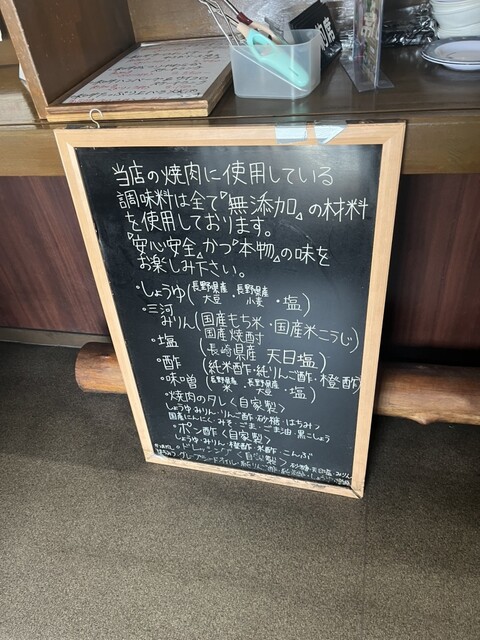 当店の焼肉に使用している
調味料は全て『無添加』の材料
を使用しております。
『安心安全』かつ『本物』の味を
お楽しみ下さい。
・しょうゆ(長野県産大豆・長野県産小麦・塩)
・三河みりん(国産もち米・国産米こうじ
国産焼酎)
・塩(長崎県産 天日塩)
・酢(純米酢・純りんご酢・橙酢)
・味噌(長野県産米・長野県産大豆・塩)
・焼肉のタレ〈自家製〉
しょうゆ・みりん・りんご酢・砂糖・はちみつ
国産にんにく・みそ・ごま・ごま油・黒こしょう
・ポン酢〈自家製〉
しょうゆ・みりん・橙酢・米酢・こんぶ
・ドレッシング〈自家製〉
グレープシードオイル・純りんご酢